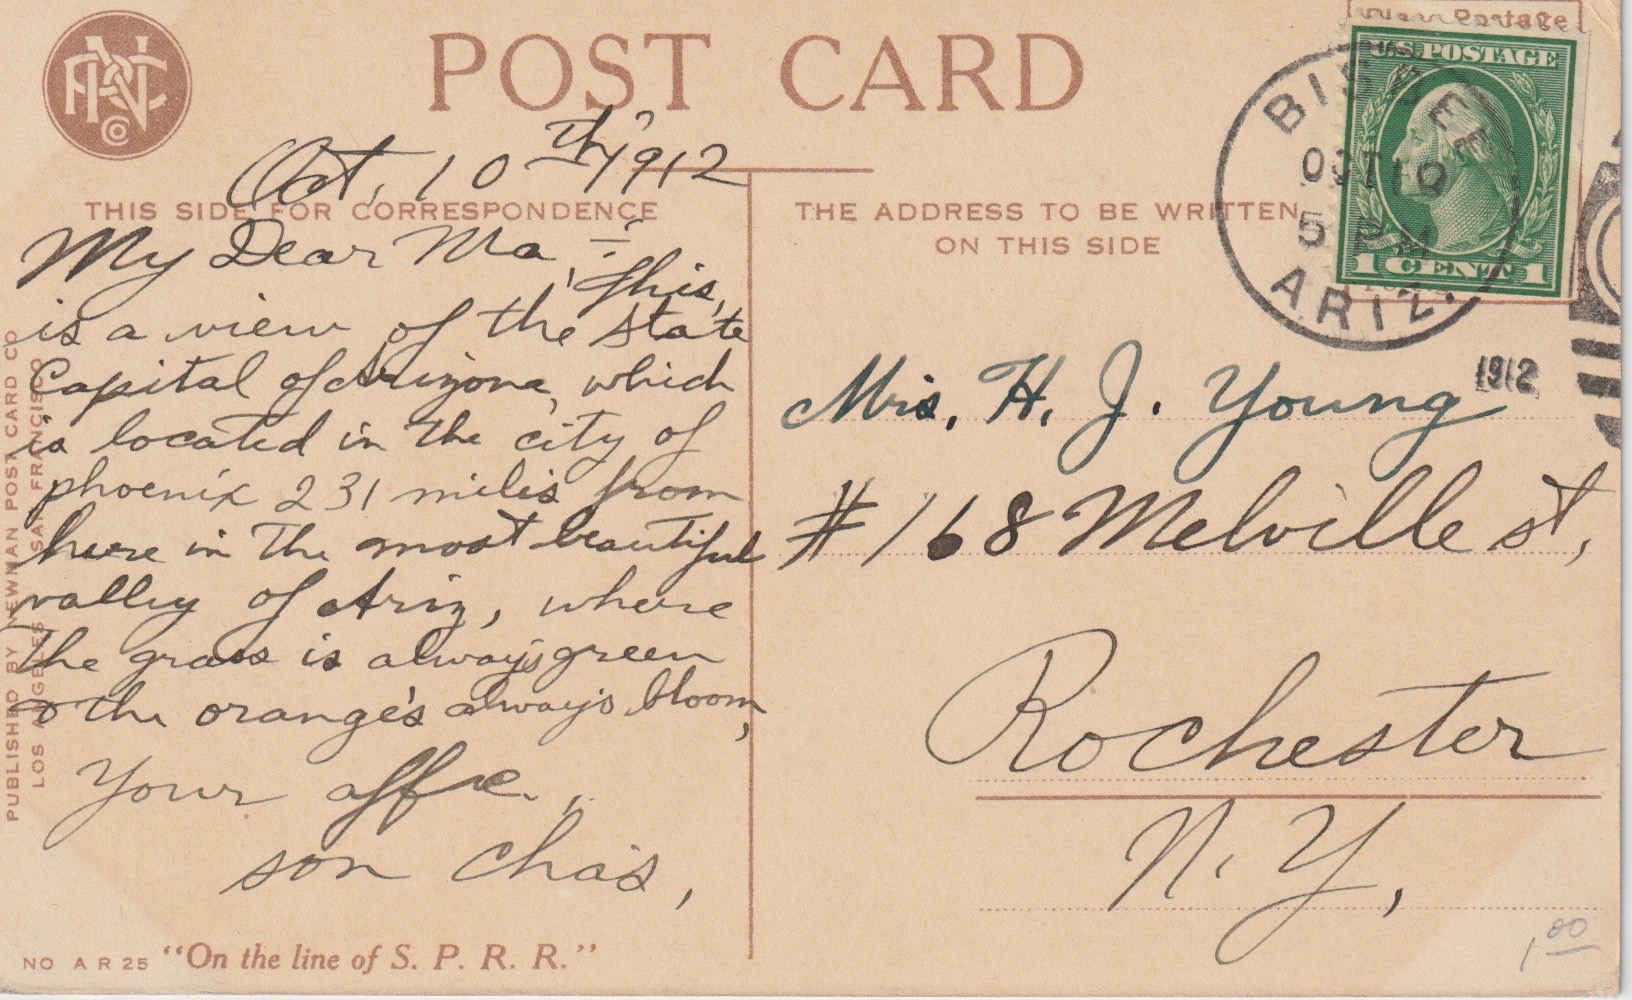 ANC
©
POST CARD
THIS SIDE FOR CORRESPONDENCE
Oct, 10th, 1912
My Dear Ma, :- This,
is a view of the state
Capital of Arizona, which
is located in the city of
phoenix 231 miles from
here in the most beautiful
valley of Ariz, where
the grass is always green
& the orange's always bloom,
Your affc.,
son Cha's,
PUBLISHED BY NEWMAN POST CARD CO
LOS ANGELES SAN FRANCISCO
NO AR 25 "On the line of S. P. R. R."
THE ADDRESS TO BE WRITTEN
ON THIS SIDE
Postage
U.S. POSTAGE
1 CENT 1
BISBEE
OCT 10
5 PM
ARIZ.
1912
Mrs, H. J. Young
# 168 Melville st,
Rochester
N. Y,
1.00